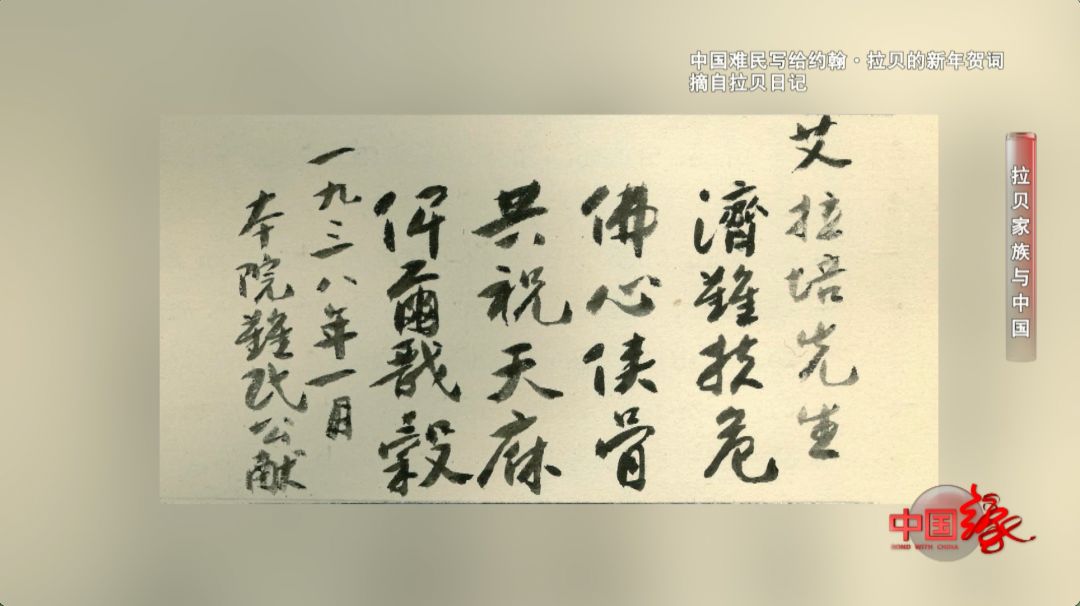 中国难民写给约翰·拉贝的新年贺词
摘自拉贝日记
艾拉培先生
濟難扶危
佛心侠骨
共祝天庥
俾爾戩穀
一九三八年一月
本院難民公献
拉贝家族与中国
中国缘
BOND WITH CHINA